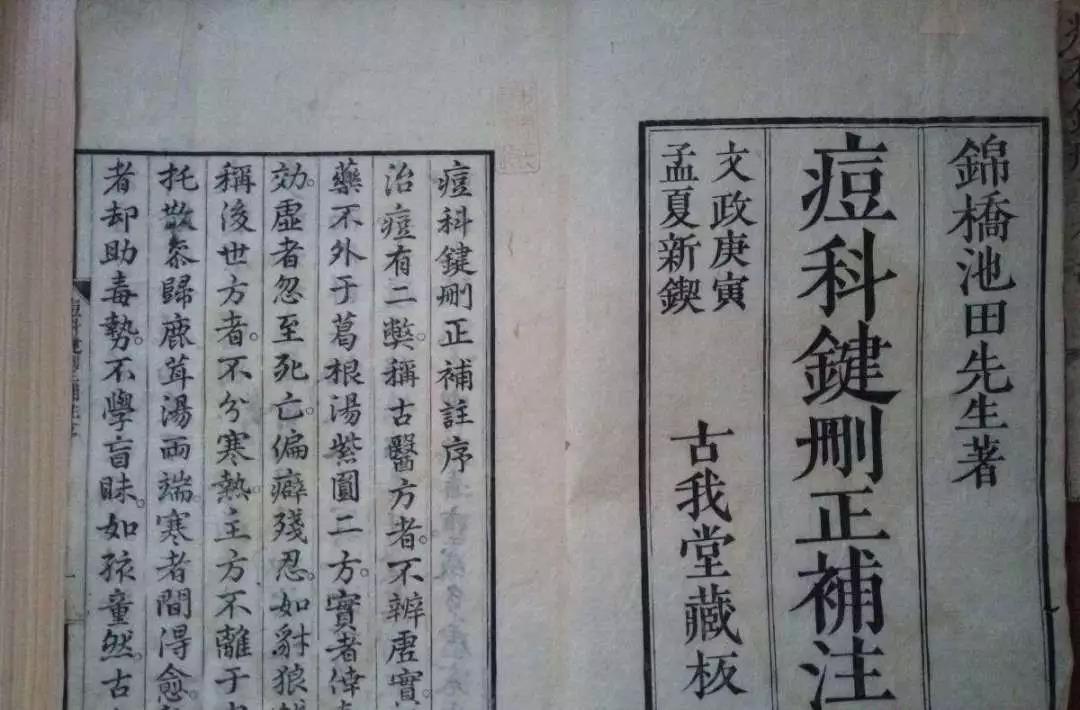 錦橋池田先生著
痘科鍵刪正補注
文政庚寅
孟夏新鍥
古我堂藏板
痘科鍵刪正補註序
治痘有二獘。稱古醫方者。不辨虛實
藥不外于葛根湯紫圓二方。實者倖
効。虛者忽至死亡。偏癖殘忍。如豺狼
稱後世方者。不分寒熱。主方不離于
托散叅歸鹿茸湯兩端。寒者間得愈。
者却助毒勢。不學盲昧。如孩童然。古